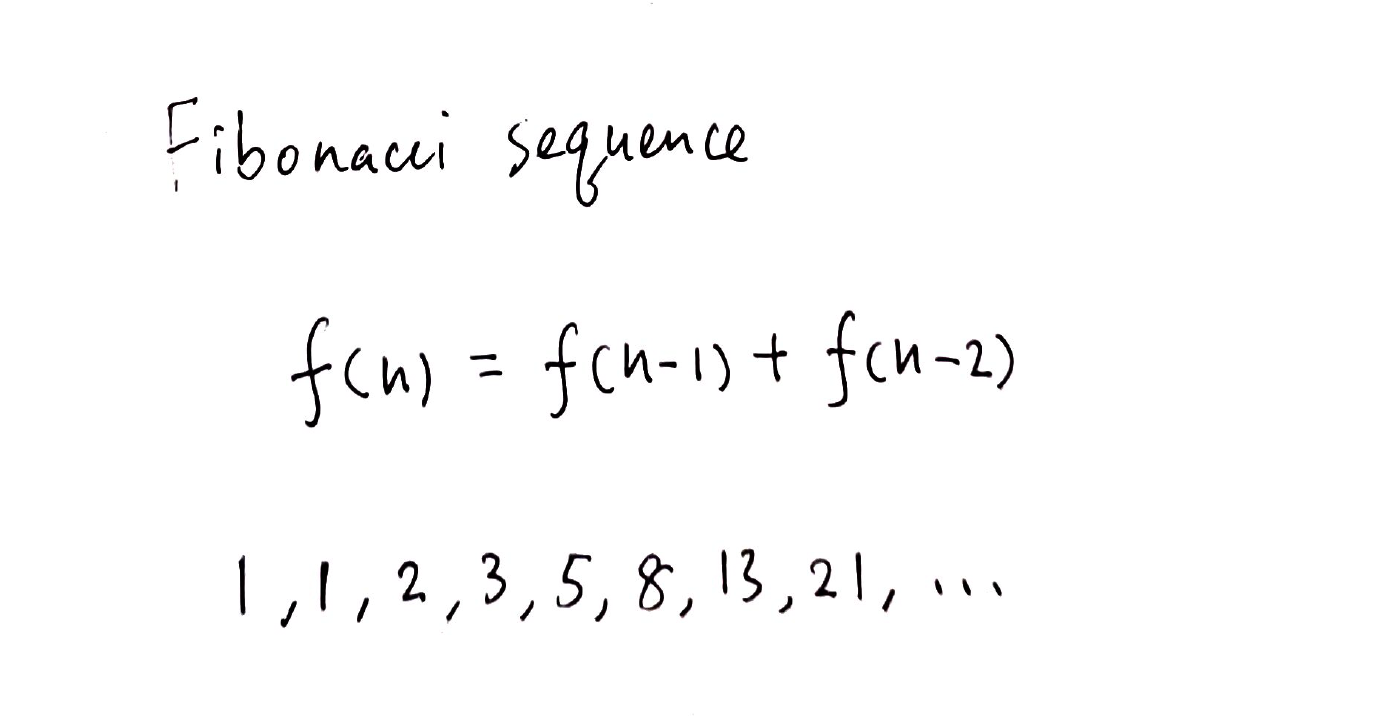 Fibonacci sequence
f(n) = f(n-1) + f(n-2)
1, 1, 2, 3, 5, 8, 13, 21, ...